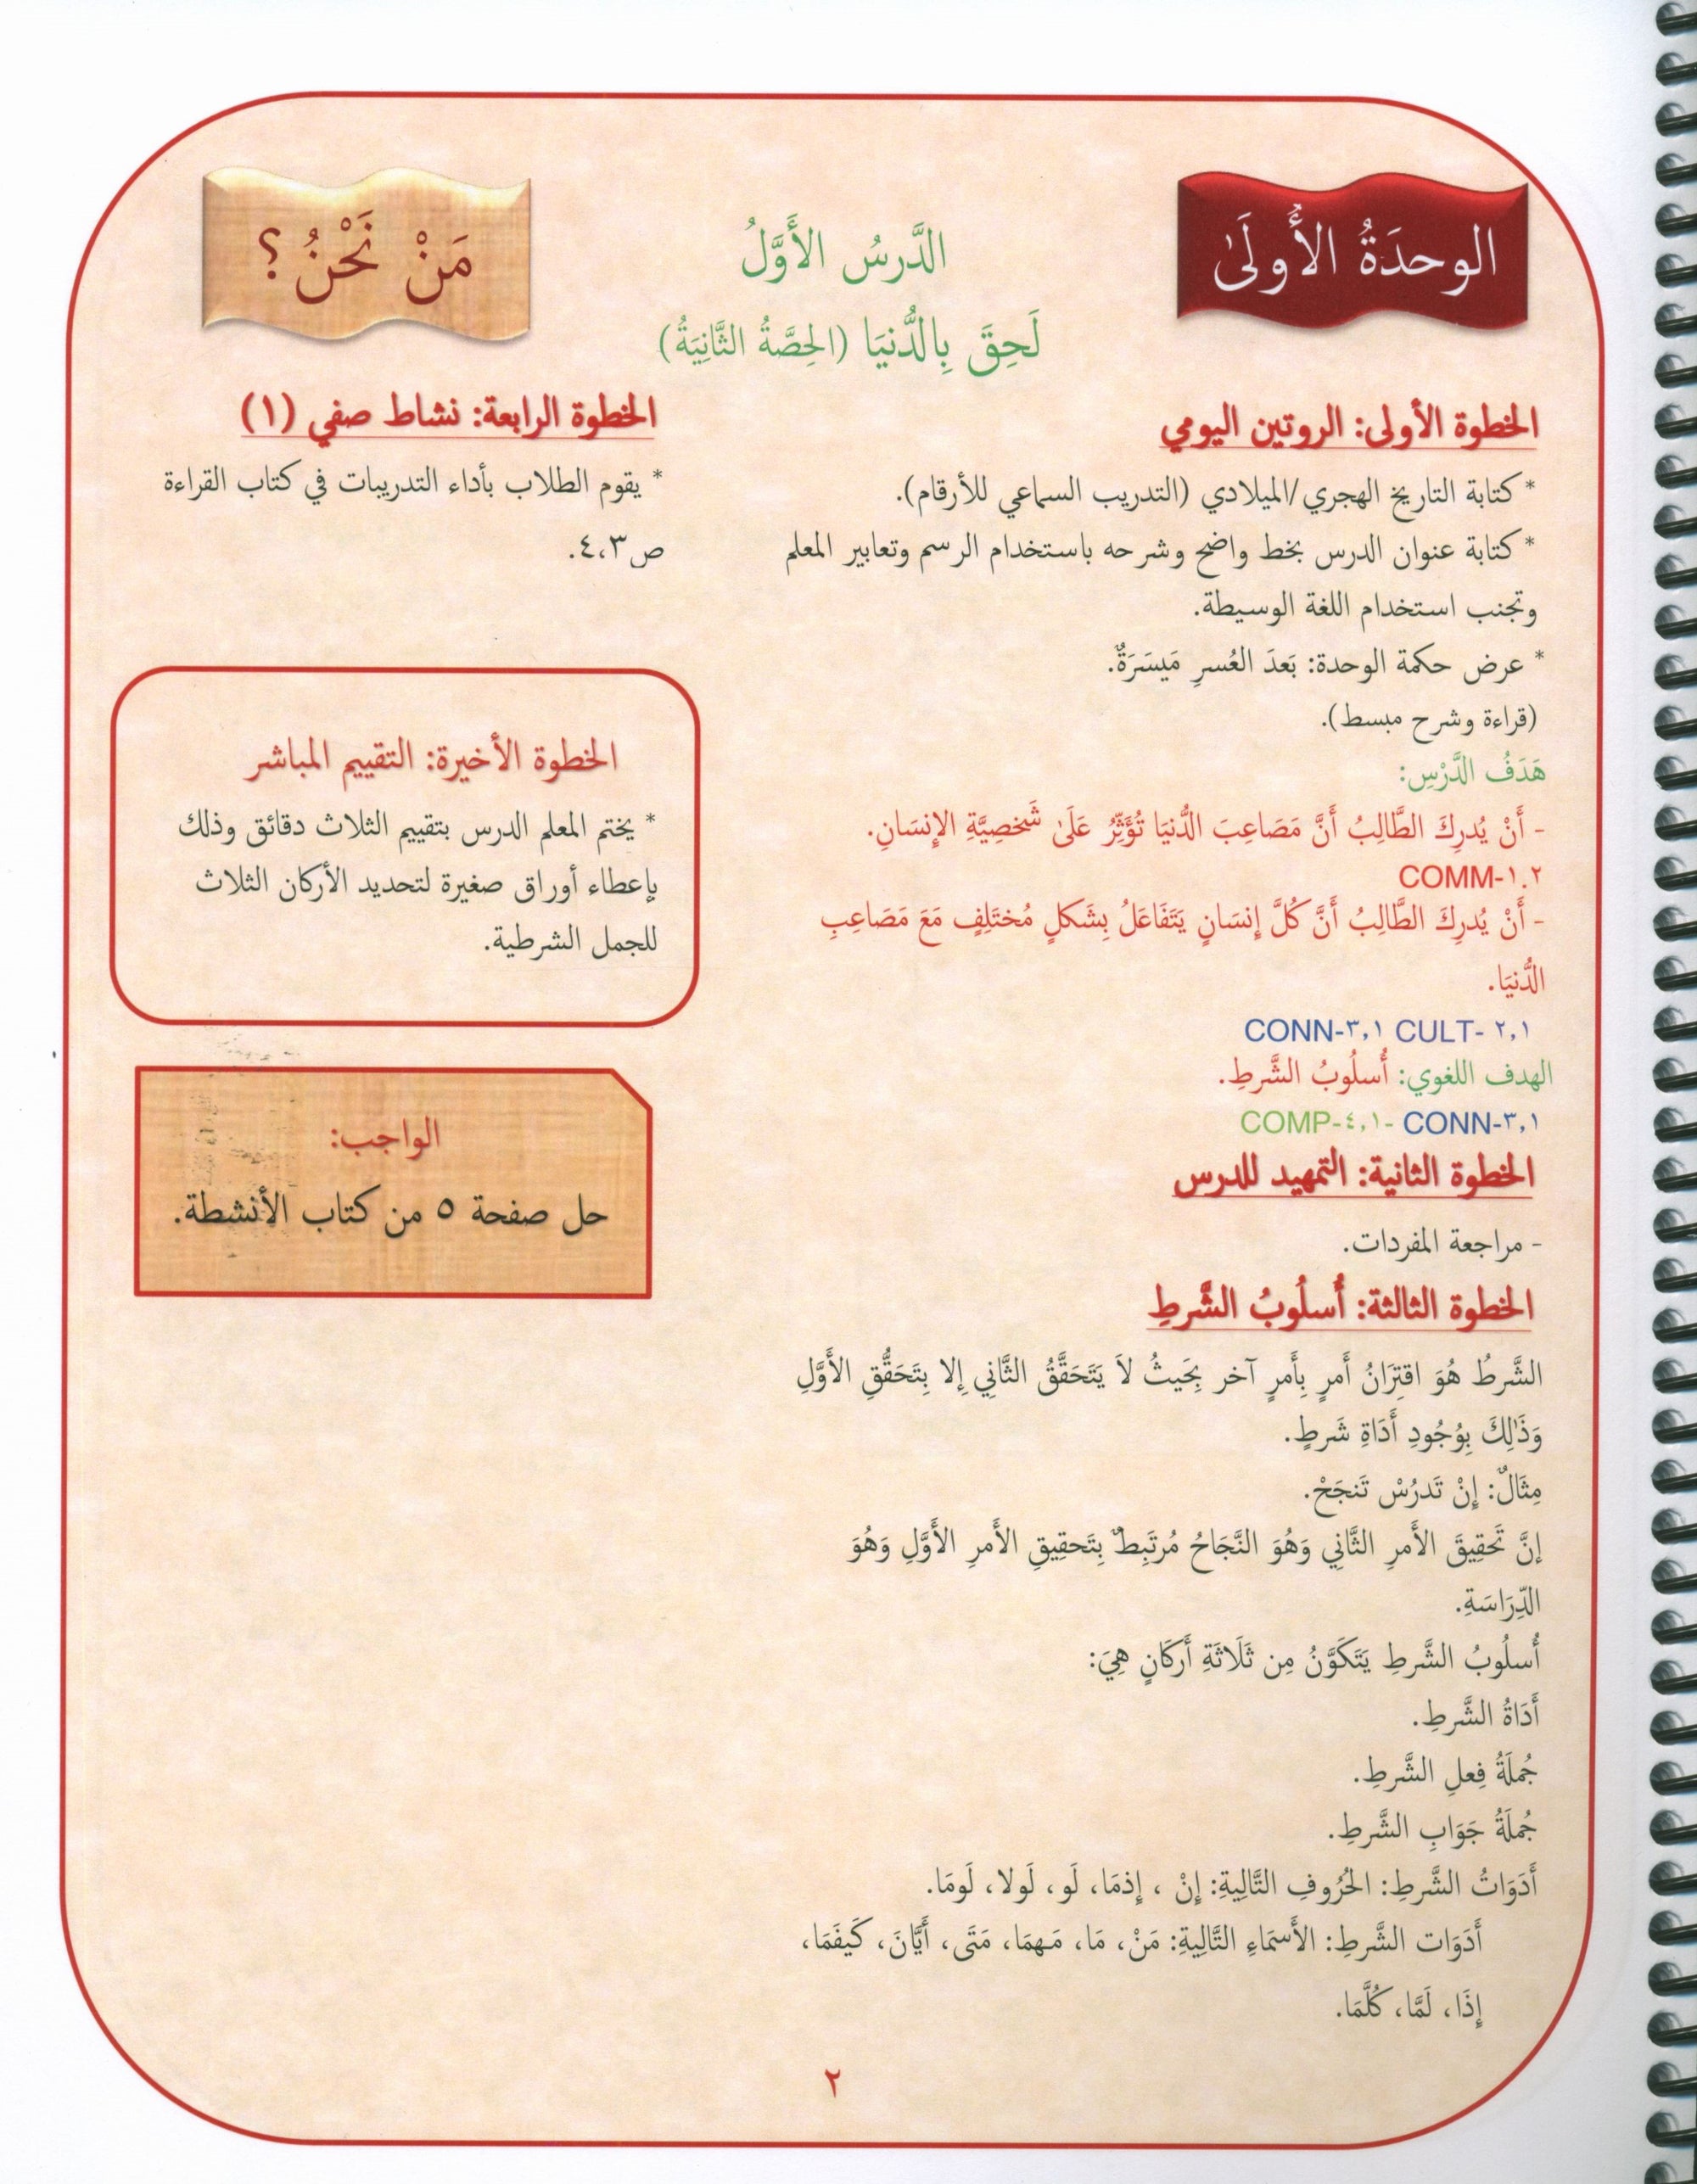 الوحدَةُ الأُولَىٰ
الدَّرسُ الأَوَّلُ
مَنْ نَحْنُ؟
لَحِقَ بِالدُّنيَا (الحِصَّةُ الثَّانِيَةُ)
الخطوة الأولى: الروتين اليومي
* كتابة التاريخ الهجري/الميلادي (التدريب السماعي للأرقام).
* كتابة عنوان الدرس بخط واضح وشرحه باستخدام الرسم وتعابير المعلم
وتجنب استخدام اللغة الوسيطة.
* عرض حكمة الوحدة: بَعدَ العُسرِ مَيسَرَةٌ.
(قراءة وشرح مبسط).
هَدَفُ الدَّرْسِ:
- أَنْ يُدرِكَ الطَّالِبُ أَنَّ مَصَاعِبَ الدُّنيَا تُؤَثِّرُ عَلَىٰ شَخصِيَّةِ الإِنسَانِ.
COMM-١.٢
- أَنْ يُدرِكَ الطَّالِبُ أَنَّ كُلَّ إِنسَانٍ يَتَفَاعَلُ بِشَكلٍ مُختَلِفٍ مَعَ مَصَاعِبِ
الدُّنيَا.
CONN-٣,١ CULT- ٢,١
الهدف اللغوي: أُسلُوبُ الشَّرطِ.
COMP-٤,١- CONN-٣,١
الخطوة الثانية: التمهيد للدرس
- مراجعة المفردات.
الخطوة الثالثة: أُسلُوبُ الشَّرطِ
الشَّرطُ هُوَ اقتِرَانُ أَمرٍ بِأَمرٍ آخر بِحَيثُ لاَ يَتَحَقَّقُ الثَّانِي إِلا بِتَحَقُّقِ الأَوَّلِ
وَذَٰلِكَ بِوُجُودِ أَدَاةِ شَرطٍ.
مِثَالٌ: إِنْ تَدرُسْ تَنجَحْ.
إِنَّ تَحقِيقَ الأَمرِ الثَّانِي وَهُوَ النَّجَاحُ مُرتَبِطٌ بِتَحقِيقِ الأَمرِ الأَوَّلِ وَهُوَ
الدِّرَاسَةِ.
أُسلُوبُ الشَّرطِ يَتَكَوَّنُ مِن ثَلَاثَةِ أَركَانٍ هِيَ:
أَدَاةُ الشَّرطِ.
جُملَةُ فِعلِ الشَّرطِ.
جُملَةُ جَوَابِ الشَّرطِ.
أَدَوَاتُ الشَّرطِ: الحُرُوفِ التَّالِيةِ: إِنْ ، إِذمَا، لَو، لَولا، لَومَا.
أَدَوَات الشَّرطِ: الأَسمَاءِ التَّالِيةِ: مَنْ، مَا، مَهمَا، مَتَى، أَيَّانَ، كَيفَمَا،
إِذَا، لَمَّا، كُلَّمَا.
الخطوة الرابعة: نشاط صفي (١)
* يقوم الطلاب بأداء التدريبات في كتاب القراءة
ص ٣،٤.
الخطوة الأخيرة: التقييم المباشر
* يختم المعلم الدرس بتقييم الثلاث دقائق وذلك
بإعطاء أوراق صغيرة لتحديد الأركان الثلاث
للجمل الشرطية.
الواجب:
حل صفحة ٥ من كتاب الأنشطة.
٢